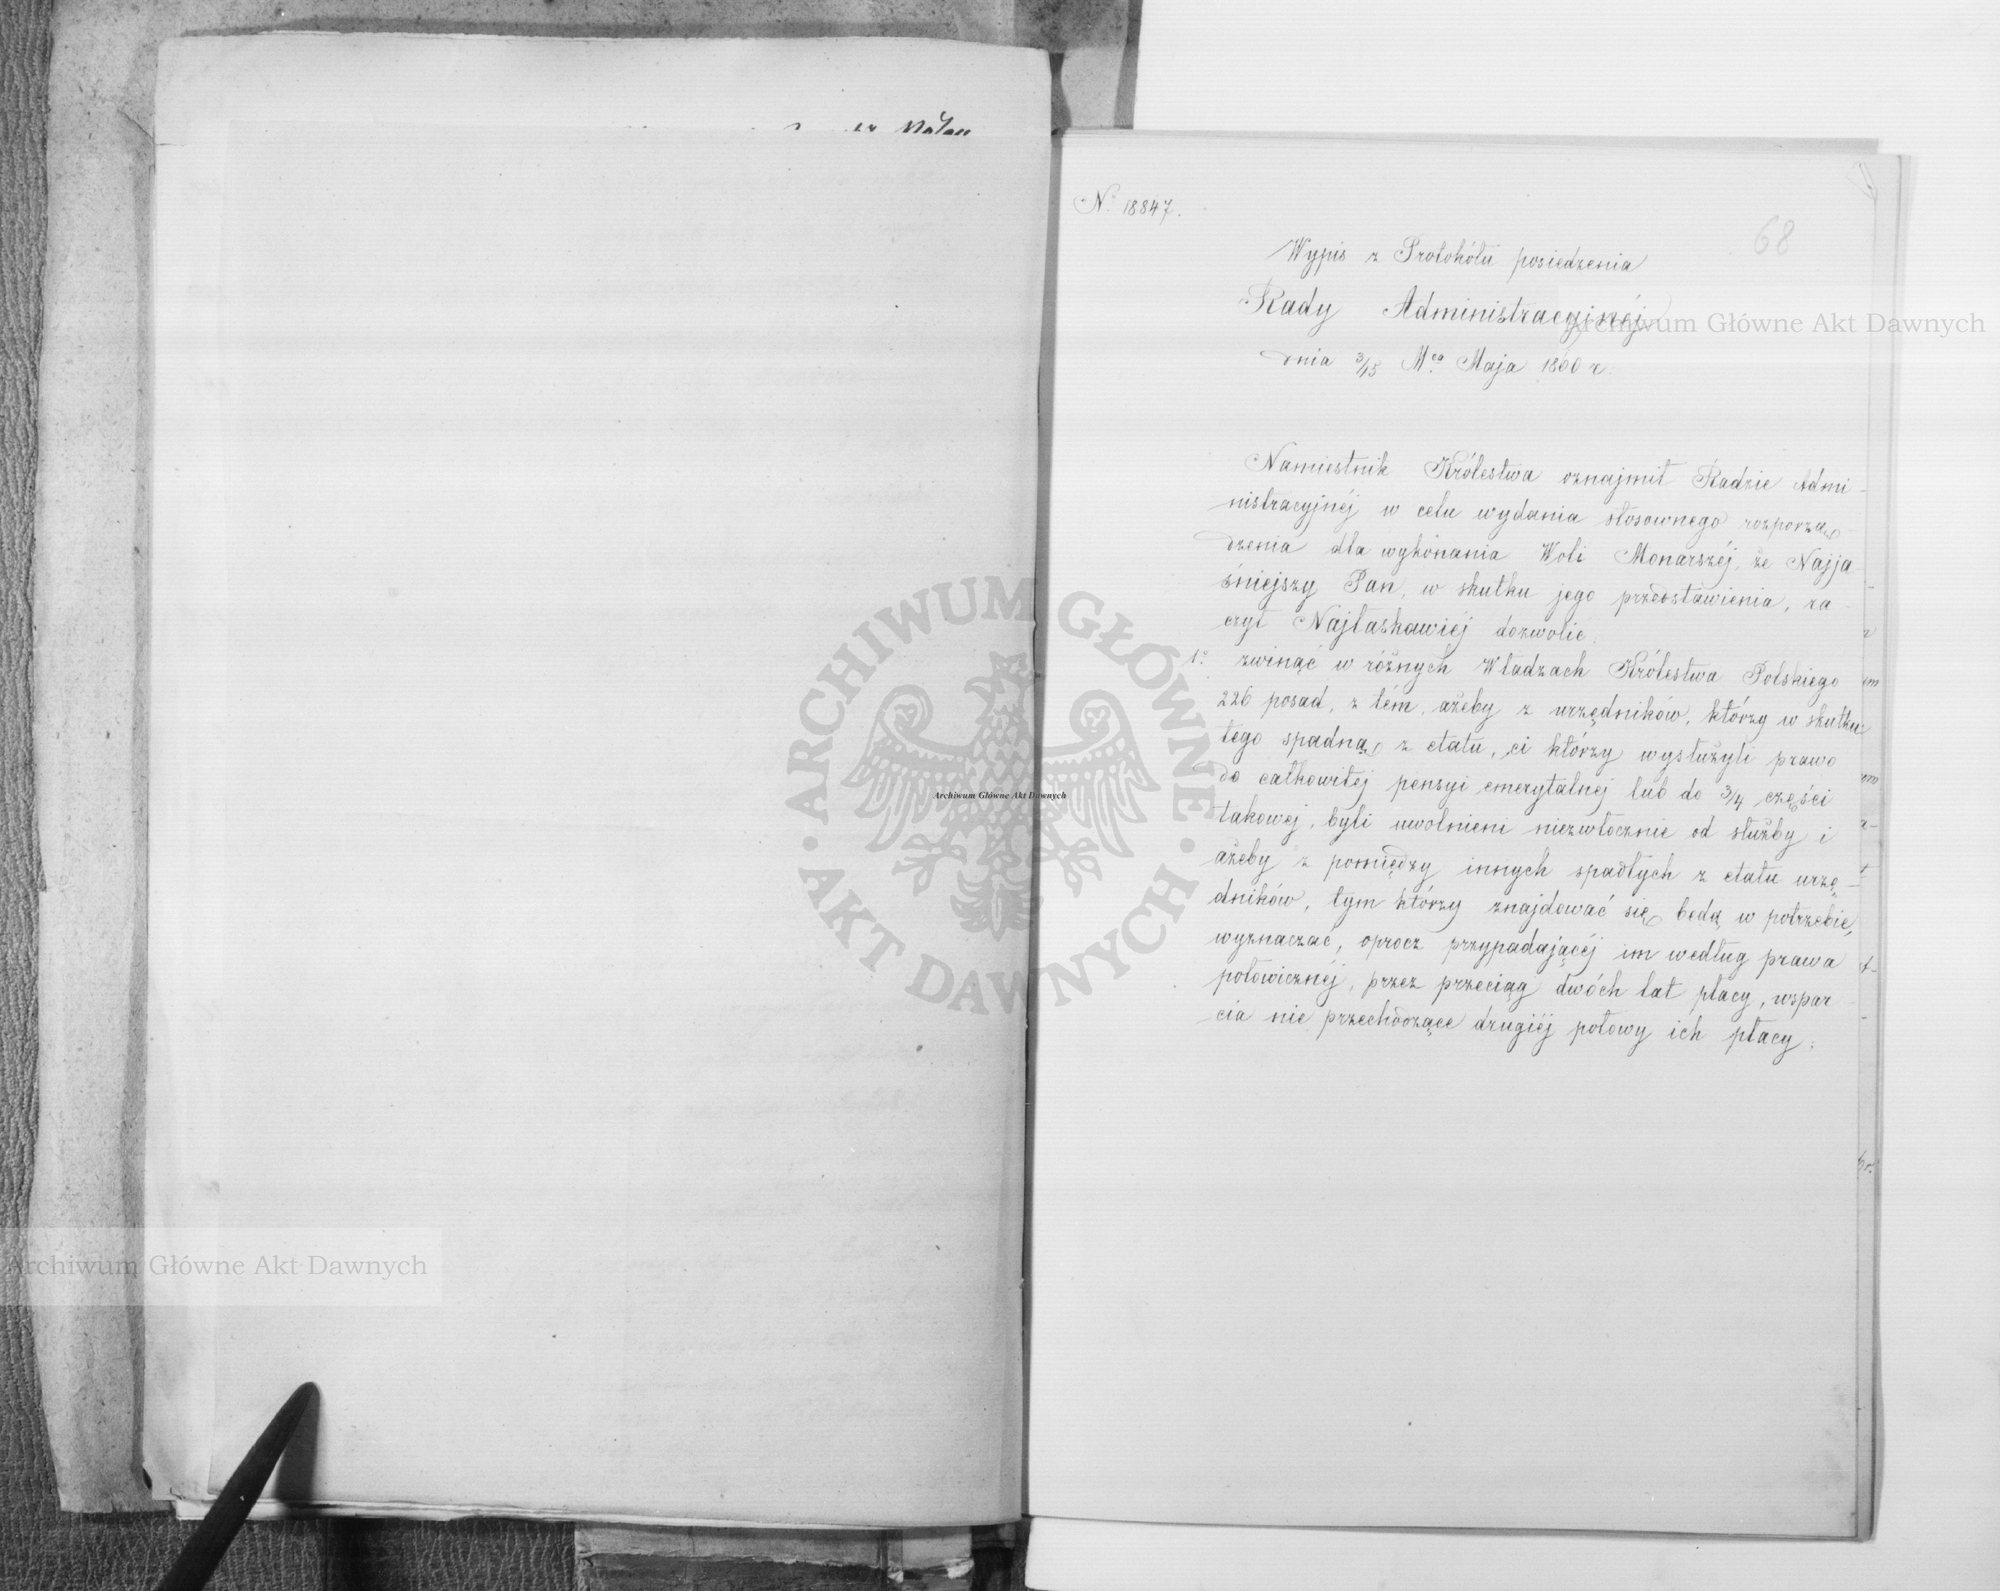 № 18847.
68
Wypis z Protokółu posiedzenia
Rady Administracyjnéj
dnia 3/15 Mca Maja 1860 r.
Namiestnik Królestwa oznajmił Radzie Admi-
nistracyjnéj w celu wydania stosownego rozporzą-
dzenia dla wykonania Woli Monarszéj, że Najja-
śniejszy Pan, w skutku jego przedstawienia, ra-
czył Najłaskawiéj dozwolić:
1o zwinąć w różnych Władzach Królestwa Polskiego
226 posad, z tém, ażeby z urzędników, którzy w skutku
tego spadną z etatu, ci którzy wysłużyli prawo
do całkowitej pensyi emerytalnej lub do 3/4 części
takowej, byli uwolnieni niezwłocznie od służby i
ażeby z pomiędzy innych spadłych z etatu urzę-
dników, tym którzy znajdować się będą w potrzebie,
wyznaczać, oprocz przypadającéj im według prawa
połowicznéj, przez przeciąg dwóch lat płacy, wspar-
cia nie przechodzące drugiéj połowy ich płacy;
ARCHIWUM GŁÓWNE
AKT DAWNYCH
Archiwum Główne Akt Dawnych
Archiwum Główne Akt Dawnych
Archiwum Główne Akt Dawnych